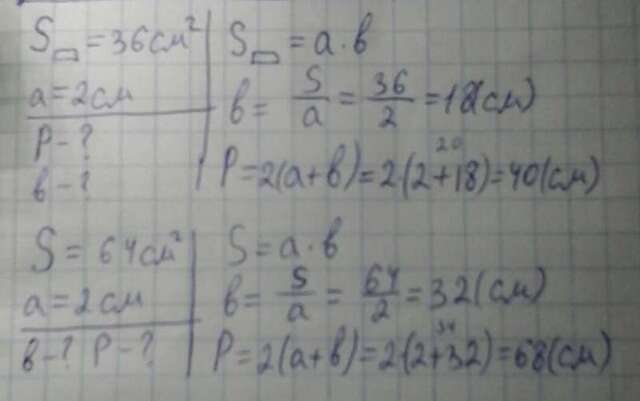 S▭ = 36 см²
a = 2 см
P - ?
в - ?
S▭ = a · в
в = S/a = 36/2 = 18(см)
20
P = 2(a+в) = 2·(2+18) = 40(см)
S = 64 см²
a = 2 см
в - ? P - ?
S = a · в
в = S/a = 64/2 = 32(см)
34
P = 2(a+в) = 2·(2+32) = 68(см)